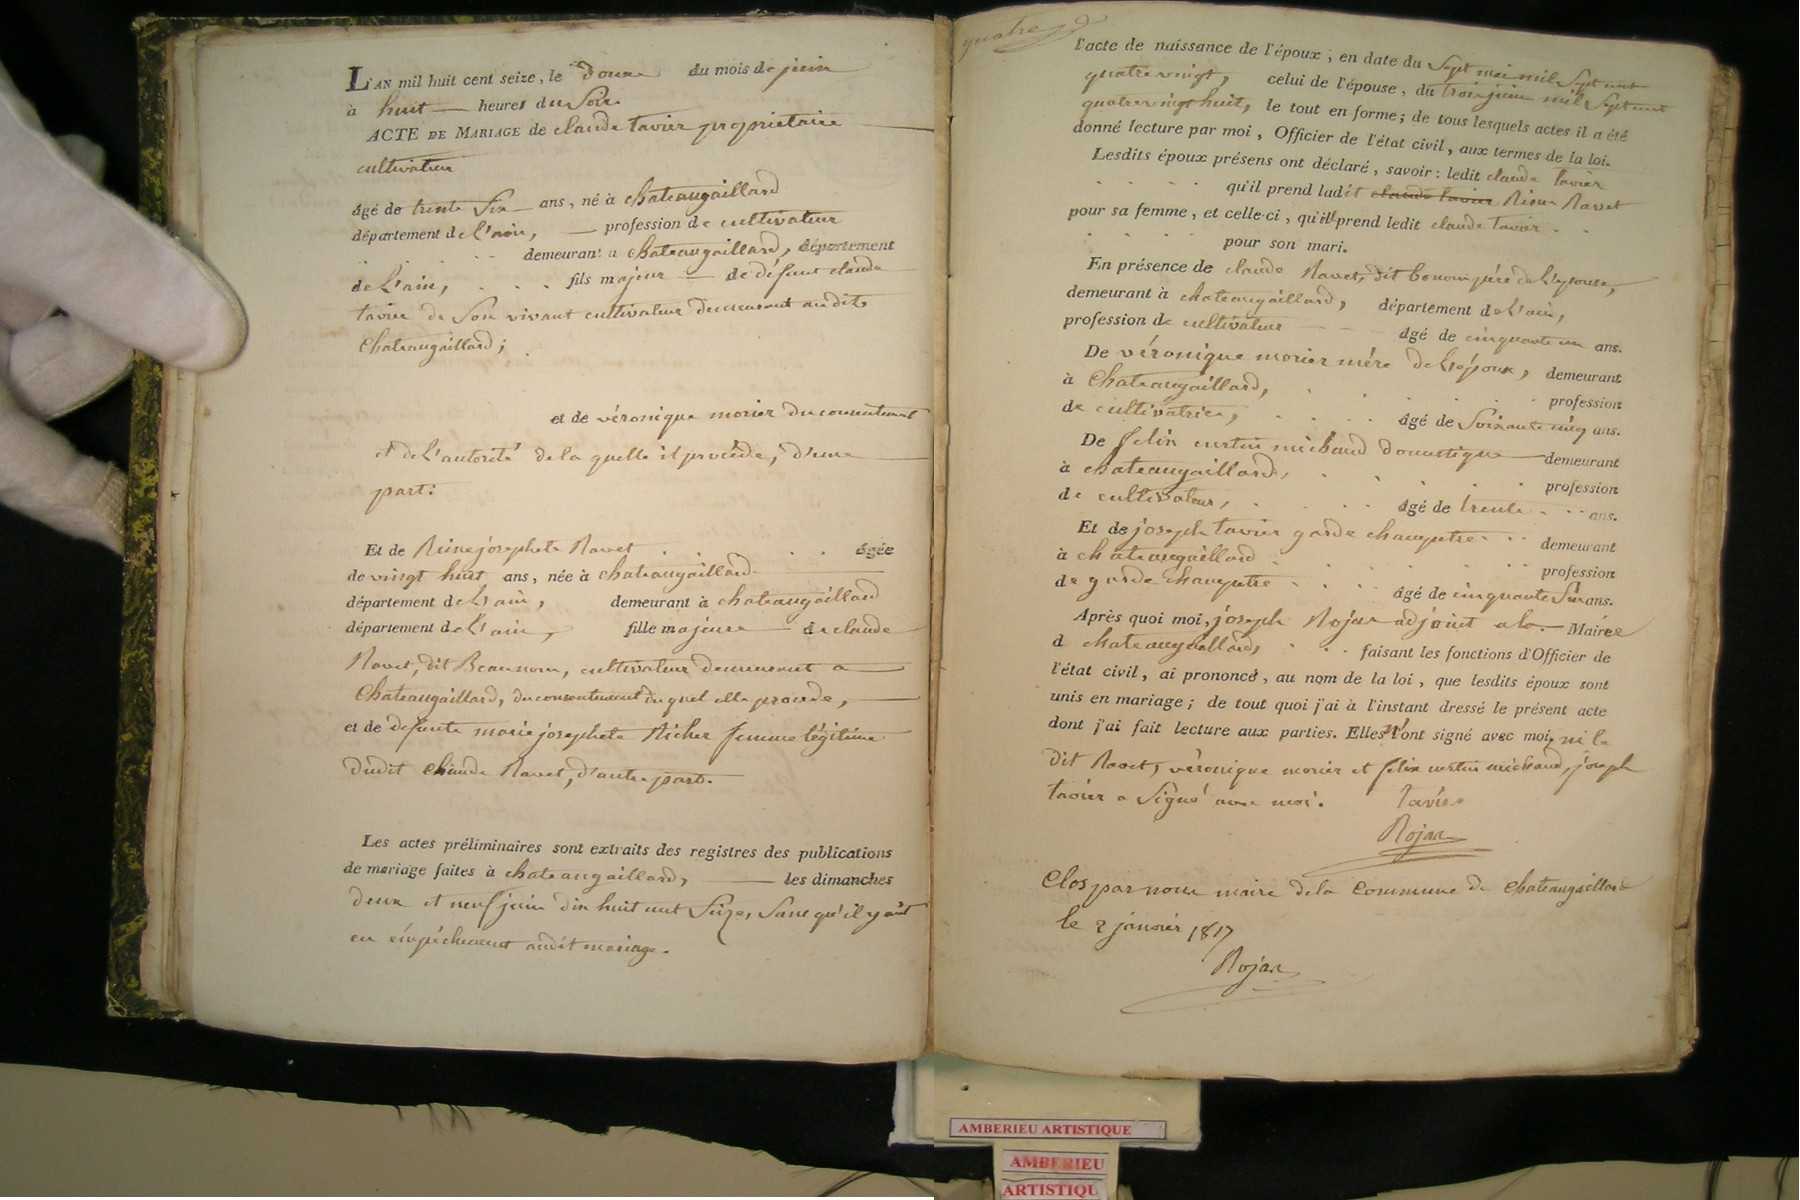 L'AN mil huit cent seize, le douze du mois de juin
à huit heures du Soir
ACTE DE MARIAGE de claude tavier propriétaire
cultivateur
âgé de trente Six ans, né à chateaugaillard
département de L'ain, profession de cultivateur
demeurant à chateaugaillard, département
de L'ain, fils majeur de défunt claude
tavier de Son vivant cultivateur demeurant audit
Chateaugaillard;
et de véronique morier du consentement
et de L'autorité de la quelle il procède, d'une
part:
Et de Reine josephete Ravet âgée
de vingt huit ans, née à chateaugaillard
département de L'ain, demeurant à chateaugaillard
département de L'ain, fille majeure de claude
Ravet, dit Beaunom, cultivateur demeurant a
Chateaugaillard, du consentement du quel elle procede,
et de defunte marie josephete Richer femme légitime
dudit Claude Ravet, d'autre part.
Les actes préliminaires sont extraits des registres des publications
de mariage faites à chateaugaillard, les dimanches
deux et neuf juin dix huit cent Seize, Sans qu'il y ait
eu empéchement audit mariage.
quatre
l'acte de naissance de l'époux; en date du Sept mai mil Sept cent
quatre vingt, celui de l'épouse, du trois juin mil Sept cent
quatre vingt huit, le tout en forme; de tous lesquels actes il a été
donné lecture par moi, Officier de l'état civil, aux termes de la loi.
Lesdits époux présens ont déclaré, savoir: ledit claude tavier
qu'il prend ladit claude tavier Reine Ravet
pour sa femme, et celle-ci, qu'ill prend ledit claude tavier
pour son mari.
En présence de claude Ravet, dit bonom père de L'epouse,
demeurant à chateaugaillard, département de L'ain,
profession de cultivateur âgé de cinquante un ans.
De véronique morier mère de L'époux, demeurant
à Chateaugaillard, profession
de cultivatrice, âgé de Soixante cinq ans.
De felix curtin michaud domestique demeurant
à chateaugaillard, profession
de cultivateur, âgé de trente ans.
Et de joseph tavier garde champetre demeurant
à chateaugaillard profession
de garde champetre âgé de cinquante Six ans.
Après quoi moi, joseph Rojar adjoint a la Mairie
d chateaugaillard, faisant les fonctions d'Officier de
l'état civil, ai prononcé, au nom de la loi, que lesdits époux sont
unis en mariage; de tout quoi j'ai à l'instant dressé le présent acte
dont j'ai fait lecture aux parties. Elles n'ont signé avec moi, ni le
dit Ravet, véronique morier et felix curtin michaud, joseph
tavier a Signé avec moi. tavier
Rojar
Clos par nous maire de la Commune de chateaugaillard
le 2 janvier 1817
Rojar
AMBERIEU ARTISTIQUE
AMBERIEU
ARTISTIQU